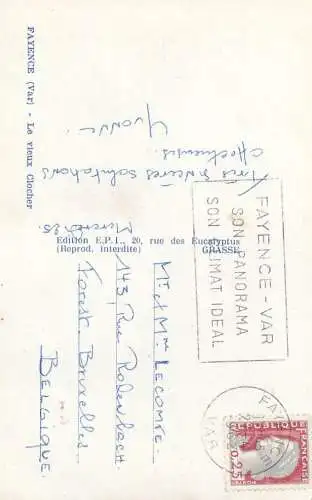 FAYENCE (Var) - Le vieux Clocher
Très sincères salutations
affectueuses.
Yvonne
Mercredi 25.
Edition E.P.I., 20, rue des Eucalyptus
(Reprod. interdite) GRASSE
FAYENCE - VAR
SON PANORAMA
SON CLIMAT IDEAL
Mr et Mme LECOMTE
143, Rue Rodenbach
Forest-Bruxelles
BELGIQUE.
FAYENCE
VAR
REPUBLIQUE
FRANÇAISE
0,25